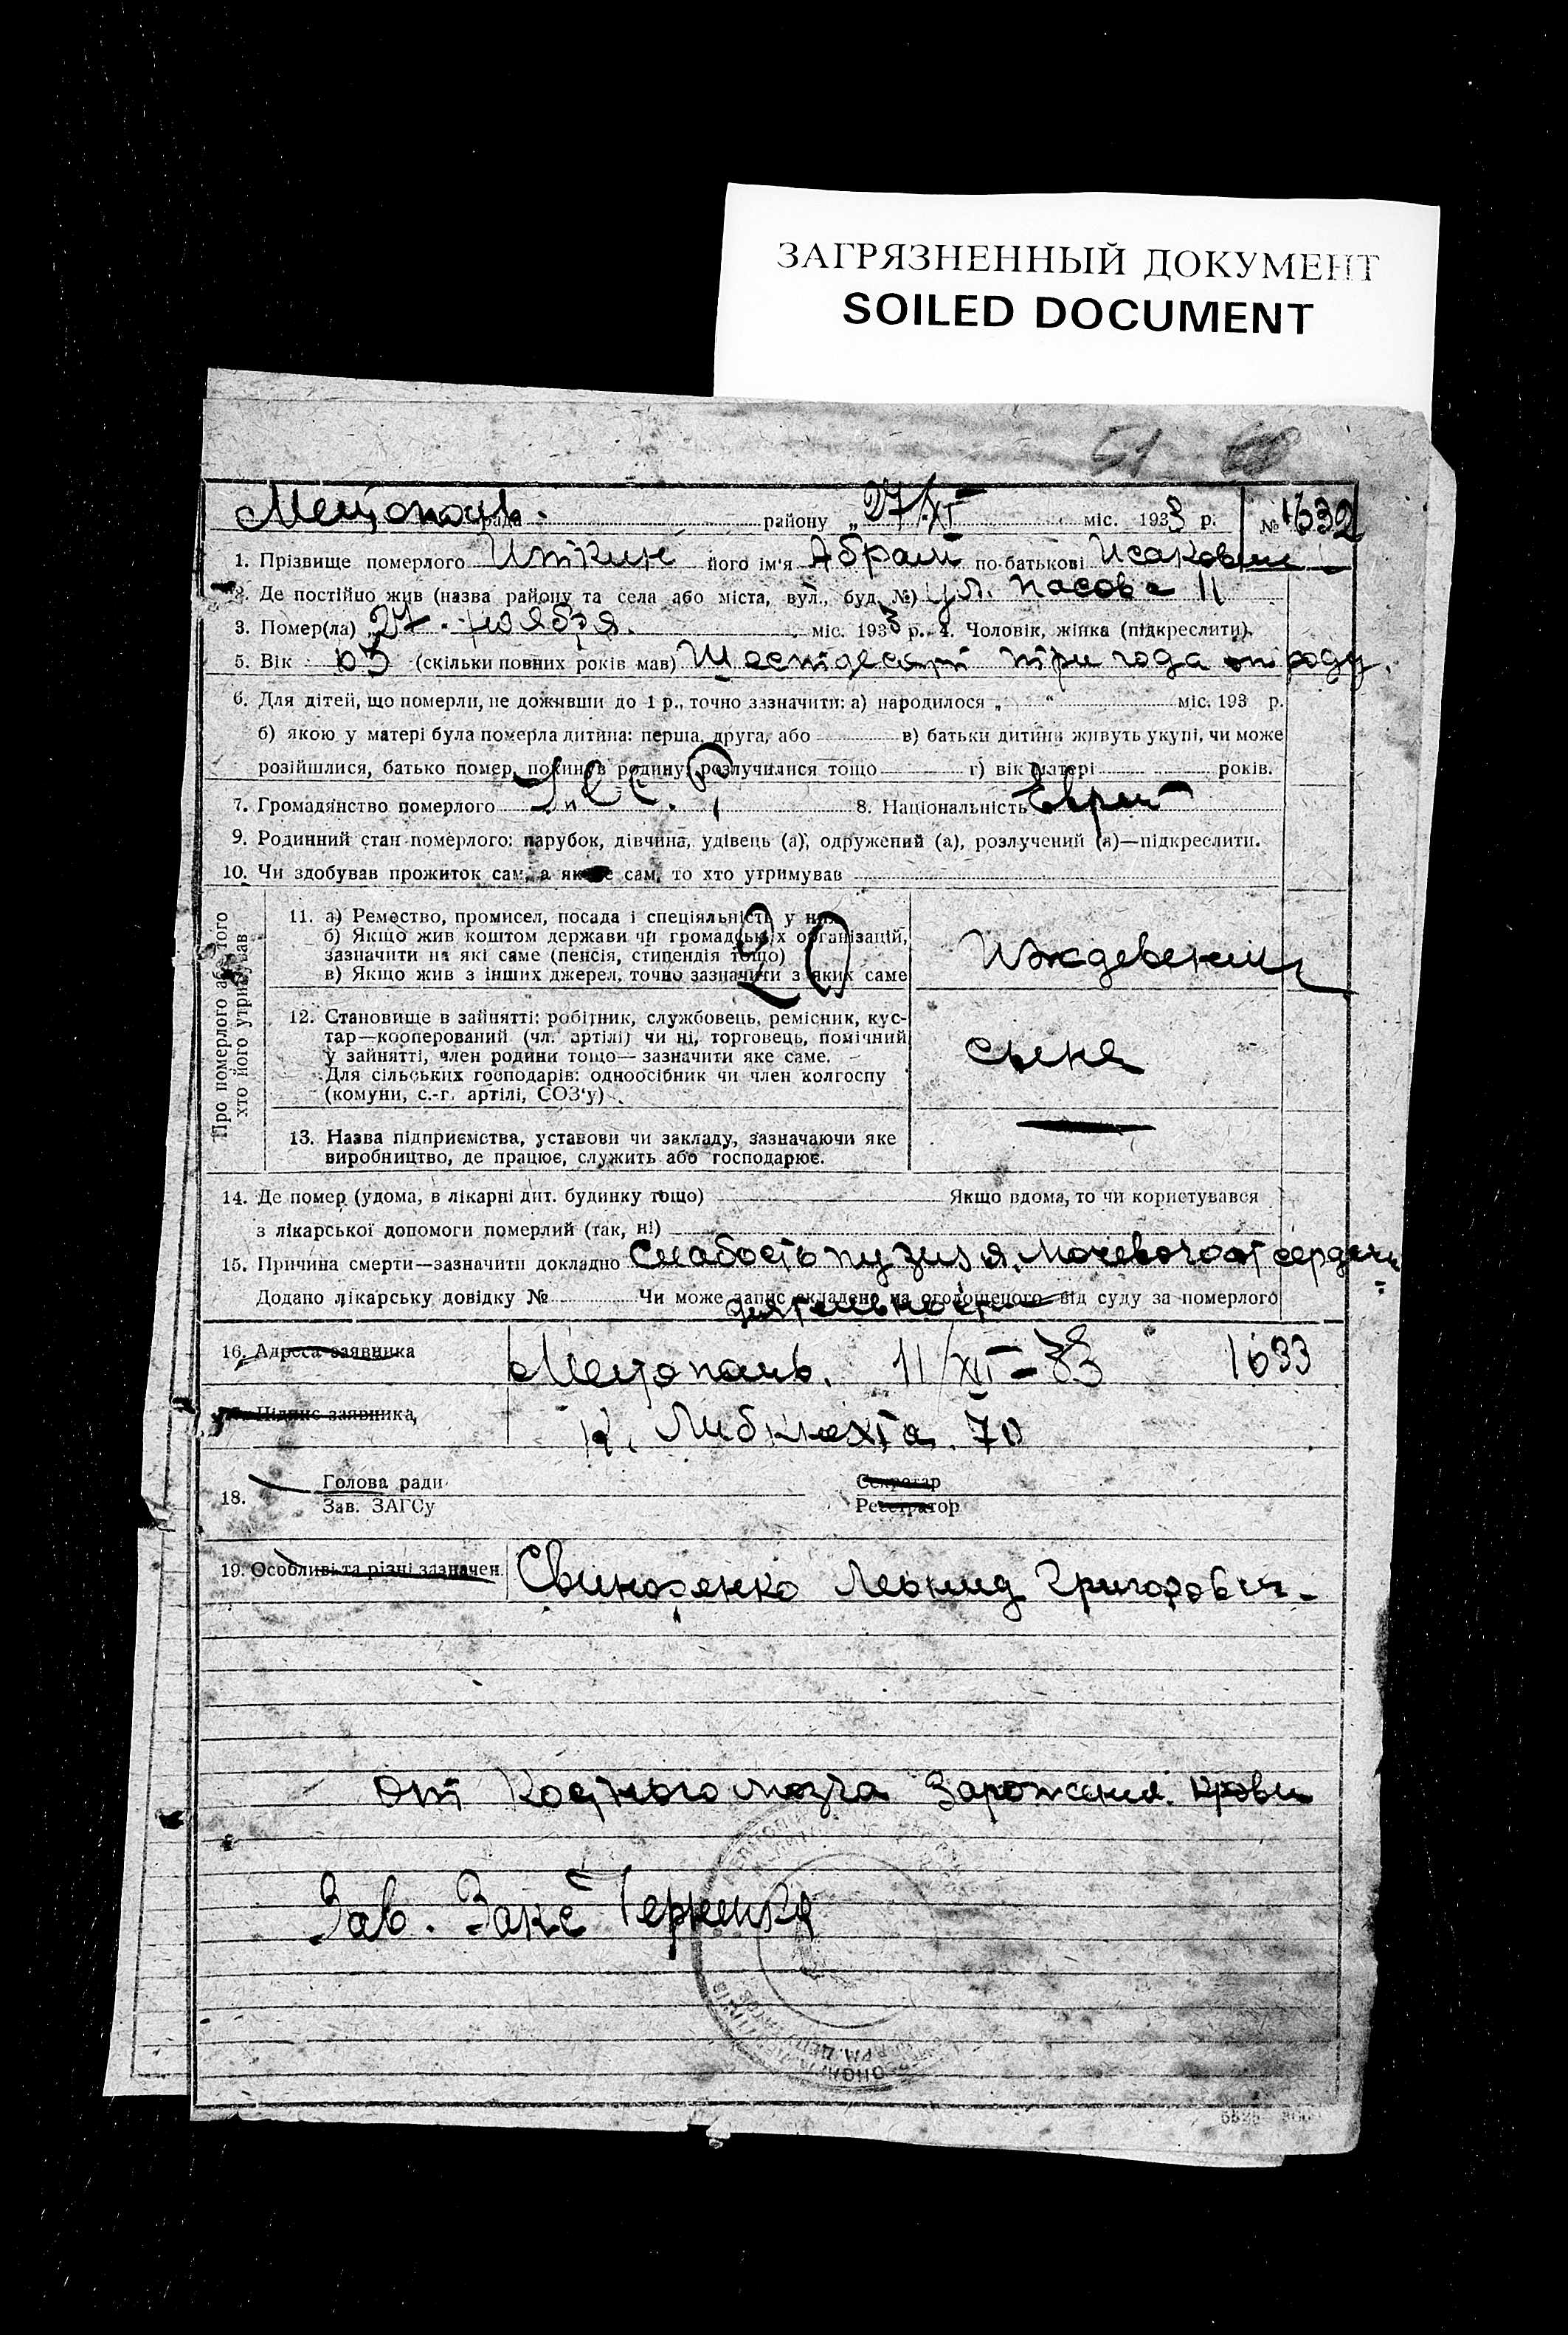 ЗАГРЯЗНЕННЫЙ ДОКУМЕНТ
SOILED DOCUMENT
51 - 60
рада району „ 27/XI міс. 1933 р. № 1632
1. Прізвище померлого Иткин його ім'я Абрам по-батькові Исакович
2. Де постійно жив (назва району та села або міста, вул., буд. №) ул.
3. Помер(ла) 27 ноября. міс. 1933 р. 4. Чоловік, жінка (підкреслити).
5. Вік 63 (скільки повних років мав) Шестдесят три года от роду.
6. Для дітей, що померли, не доживши до 1 р., точно зазначити: а) народилося „ “ міс. 193 р.
б) якою у матері була померла дитина: перша, друга, або в) батьки дитини живуть укупі, чи може
розійшлися, батько помер, покинув родину, розлучилися тощо г) вік матері років.
7. Громадянство померлого 8. Національність Еврей
9. Родинний стан померлого: парубок, дівчина, удівець (а), одружений (а), розлучений (а)—підкреслити.
10. Чи здобував прожиток сам, а як не сам, то хто утримував
Про померлого або того хто його утримував
11. а) Ремество, промисел, посада і спеціяльність у них
б) Якщо жив коштом держави чи громадських організацій,
зазначити на які саме (пенсія, стипендія тощо)
в) Якщо жив з інших джерел, точно зазначити з яких саме
20
Иждевении
12. Становище в зайнятті: робітник, службовець, ремісник, кус-
тар—кооперований (чл. артілі) чи ні, торговець, помічний
у зайнятті, член родини тощо—зазначити яке саме.
Для сільських господарів: одноосібник чи член колгоспу
(комуни, с.-г. артілі, СОЗ'у)
сына
13. Назва підприємства, установи чи закладу, зазначаючи яке
виробництво, де працює, служить або господарює.
14. Де помер (удома, в лікарні дит. будинку тощо) Якщо вдома, то чи користувався
з лікарської допомоги померлий (так, ні)
15. Причина смерти—зазначити докладно Слабость пузиря мочевого от сердечн
Додано лікарську довідку № Чи може запис складено на оголошеного від суду за померлого
деятельности
16. Адреса заявника 11/XII-33 1633
17. Підпис заявника, К. Либкнехта 70
18. Голова ради Секретар
Зав. ЗАГСу Реєстратор
19. Особливі та різні зазначен. Свиноренко Леонид Григорович
от костного мозга Зарожения крови
Зав. Закс